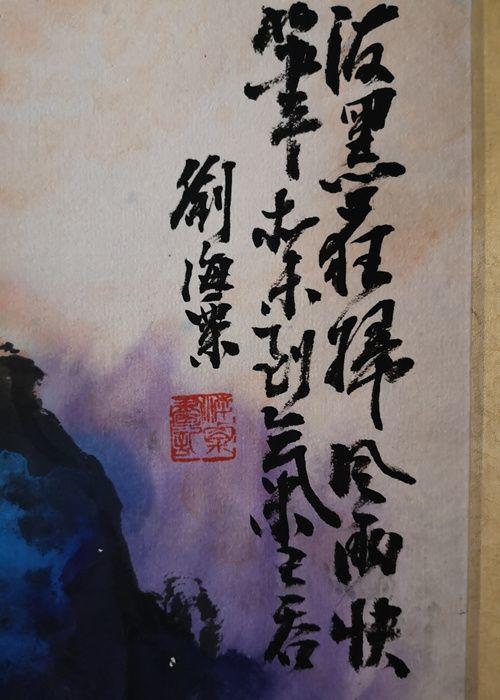 泼墨狂掃風雨快
筆所未到氣已吞
劉海粟